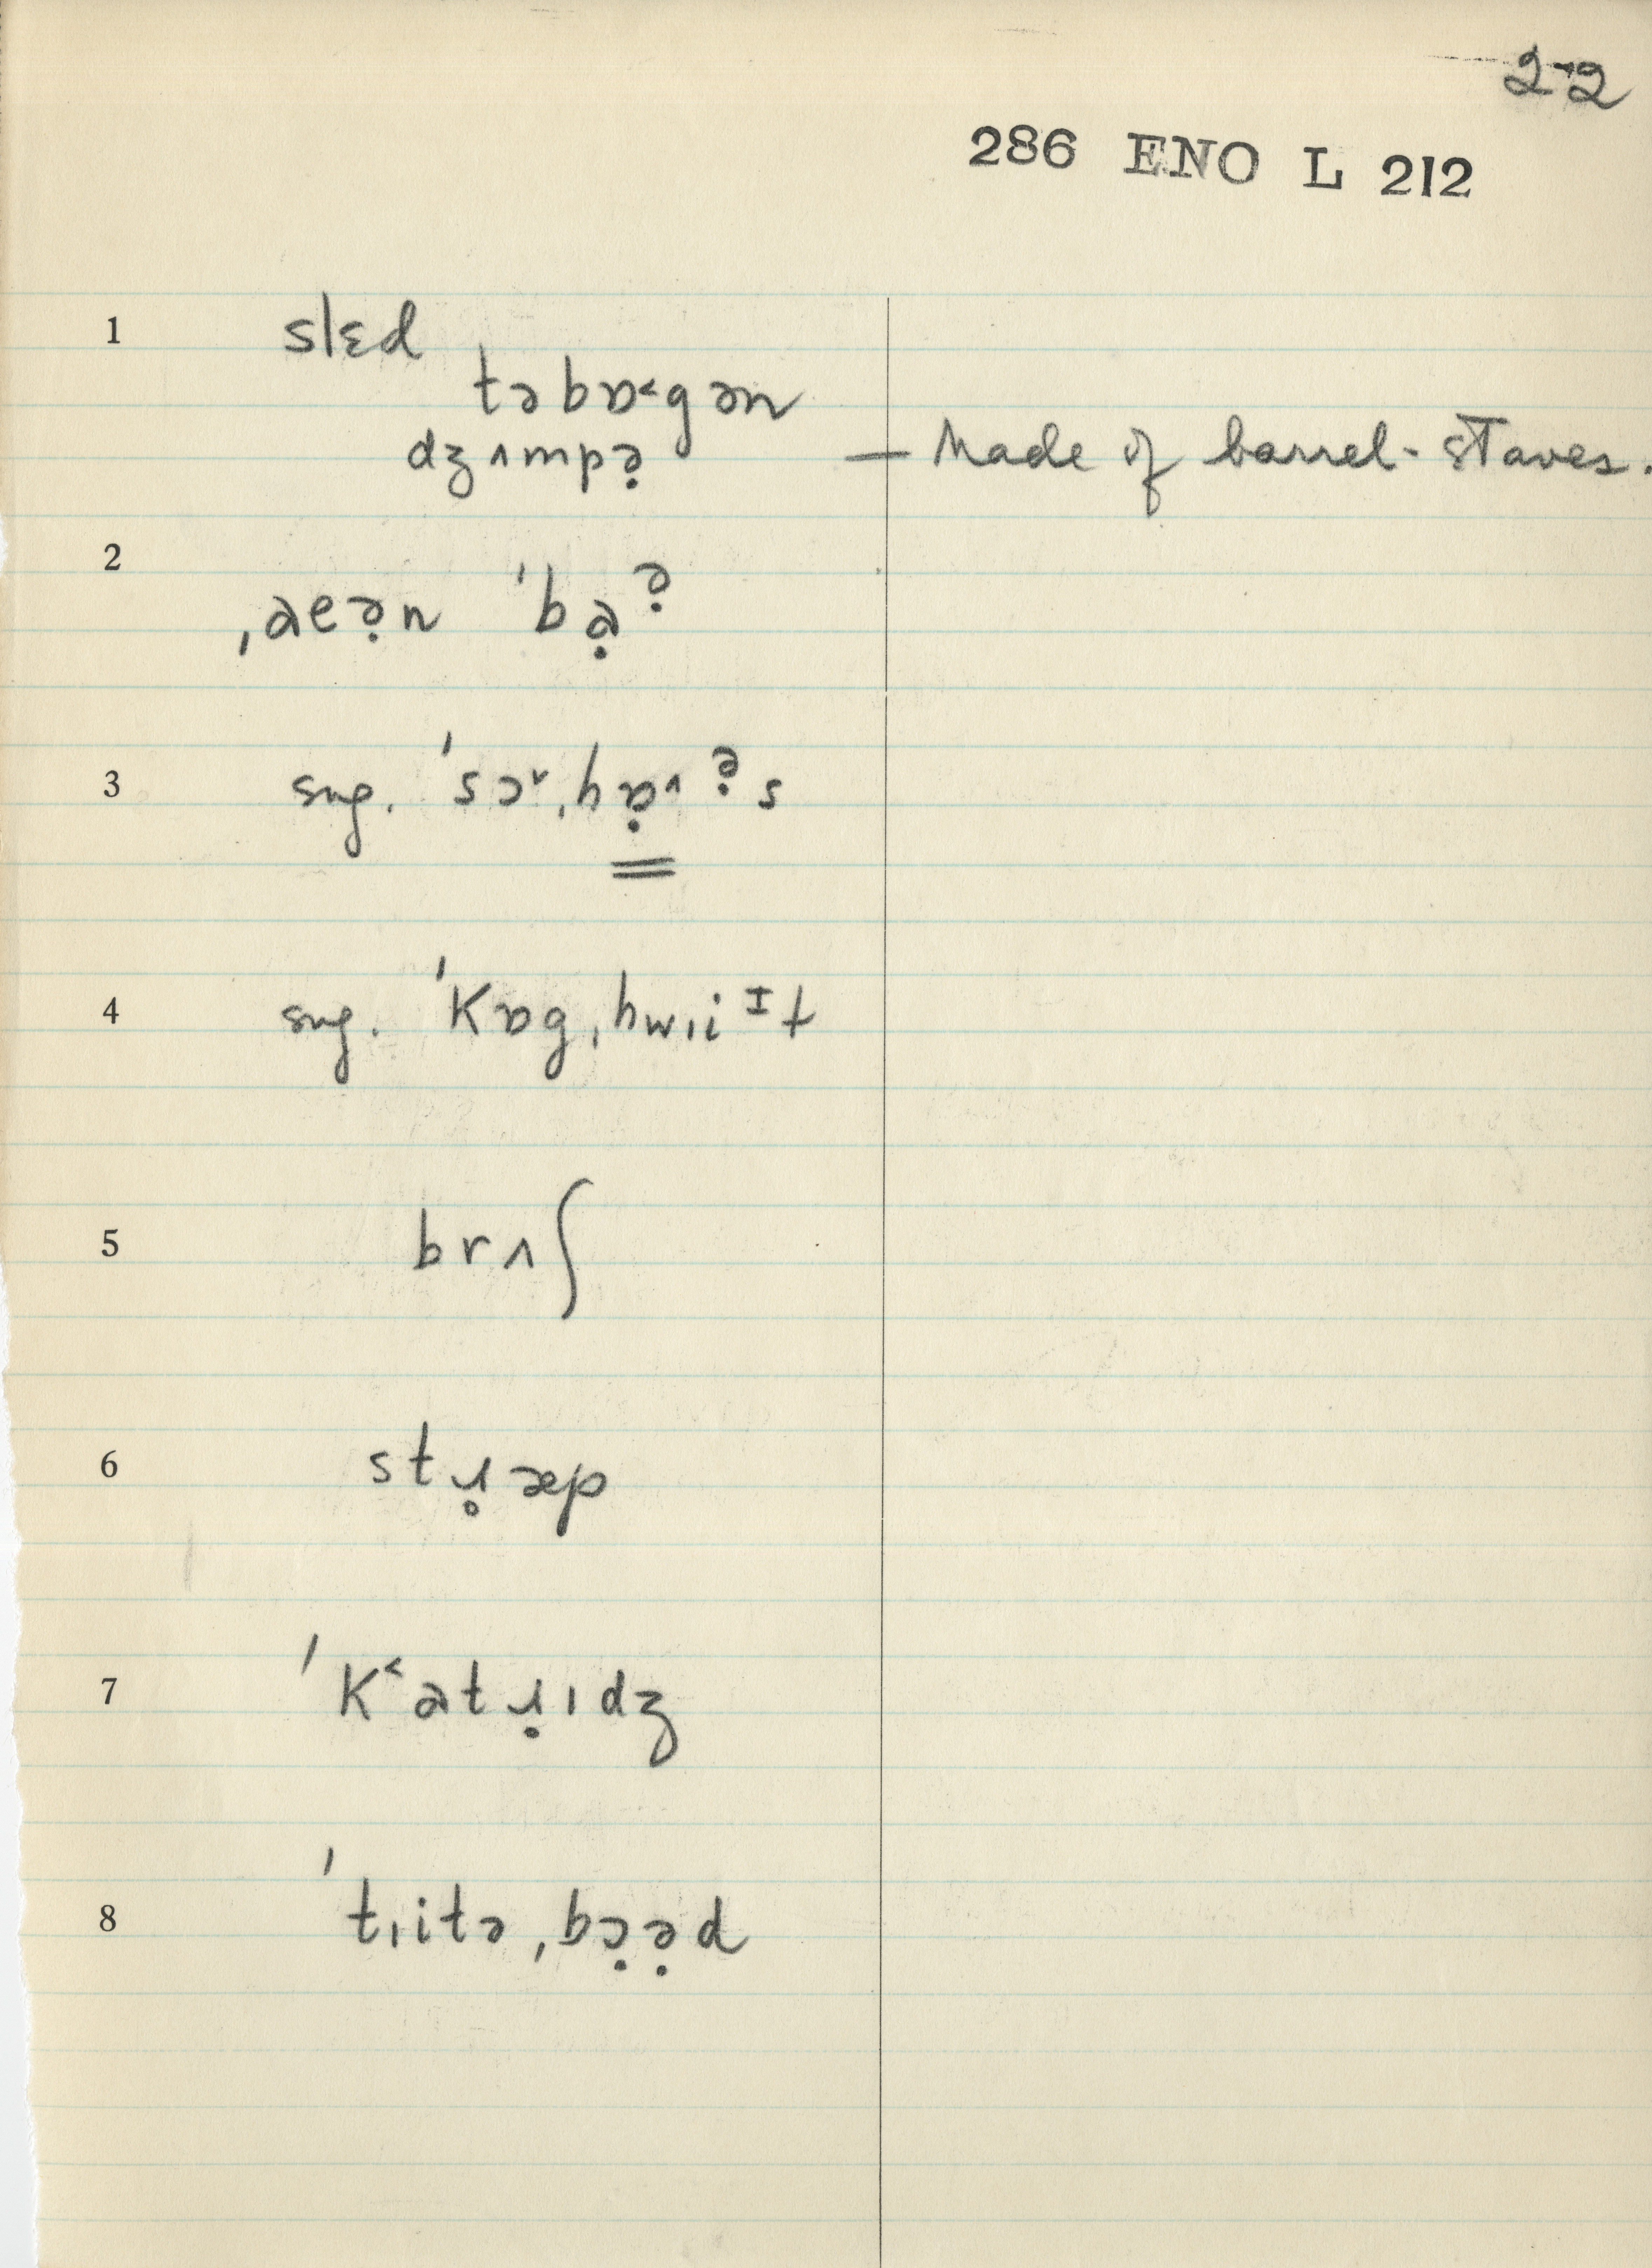 22
286 ENO L 212
1 slɛd
təbɒ˂gən
dʒʌmpə̣ — Made of barrel-staves.
2 ˌaeə̣n ˈbɐ̣ə̣
3 sug. ˈsɔᵛˌhɒ̣ʌə̣s
4 sug. ˈkɒgˌhwiɪt
5 brʌʃ
6 stɹ̥æp
7 ˈk˂atɹ̣ɪdʒ
8 ˈtɪitəˌbɔ̣ə̣d